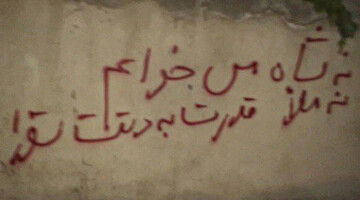 نه شاه می خواهیم
نه ملا قدرت به دست شورا